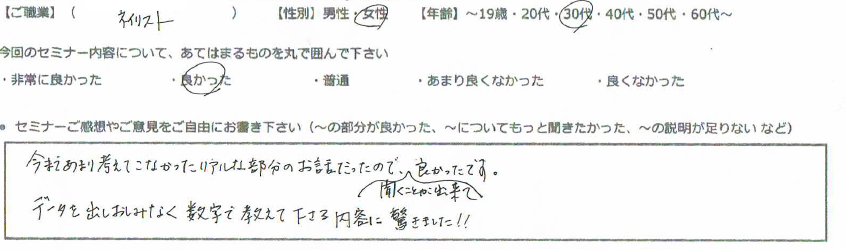 【ご職業】（ ネイリスト ）【性別】男性・女性 【年齢】～19歳・20代・30代・40代・50代・60代～
今回のセミナー内容について、あてはまるものを丸で囲んで下さい
・非常に良かった ・良かった ・普通 ・あまり良くなかった ・良くなかった
● セミナーご感想やご意見をご自由にお書き下さい（～の部分が良かった、～についてもっと聞きたかった、～の説明が足りない など）
今まであまり考えてこなかったリアルな部分のお話だったので、良かったです。
聞くことが出来て
データを出しおしみなく数字で教えて下さる内容に驚きました!!